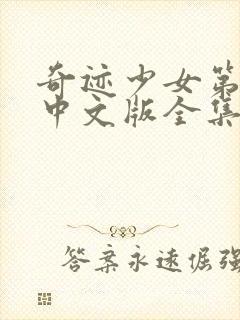 奇迹少女第
中文版全集
答案永远倔强